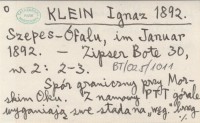 KLEIN Ignaz 1892.
Szepes-Ófalu, im Januar
1892. — Zipser Bote 30,
nr 2: 2-3.
BT/025/1011
Spór graniczny przy Mor-
skim Oku. Z namowy PTT górale
wyganiają swe stada na „węg. brzeg